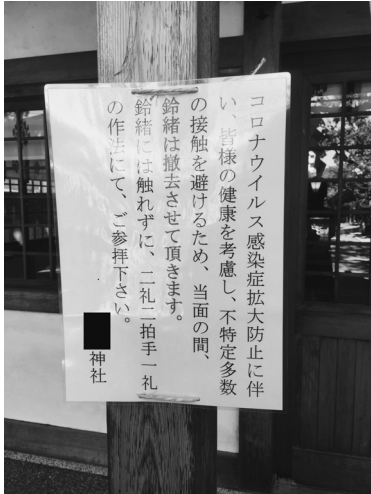 コロナウイルス感染症拡大防止に伴
い、皆様の健康を考慮し、不特定多数
の接触を避けるため、当面の間、
鈴緒は撤去させて頂きます。
鈴緒には触れずに、二礼二拍手一礼
の作法にて、ご参拝下さい。
神社